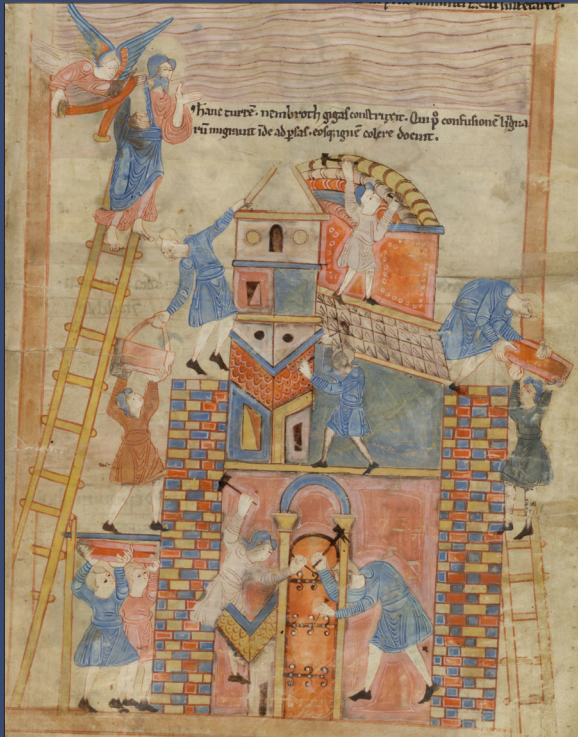 hanc turrē. nembroth gigas construxit. Qui p̊ confusionē ligua
rū migravit īde ad p̄sas. eosq; ignē colere docuit.